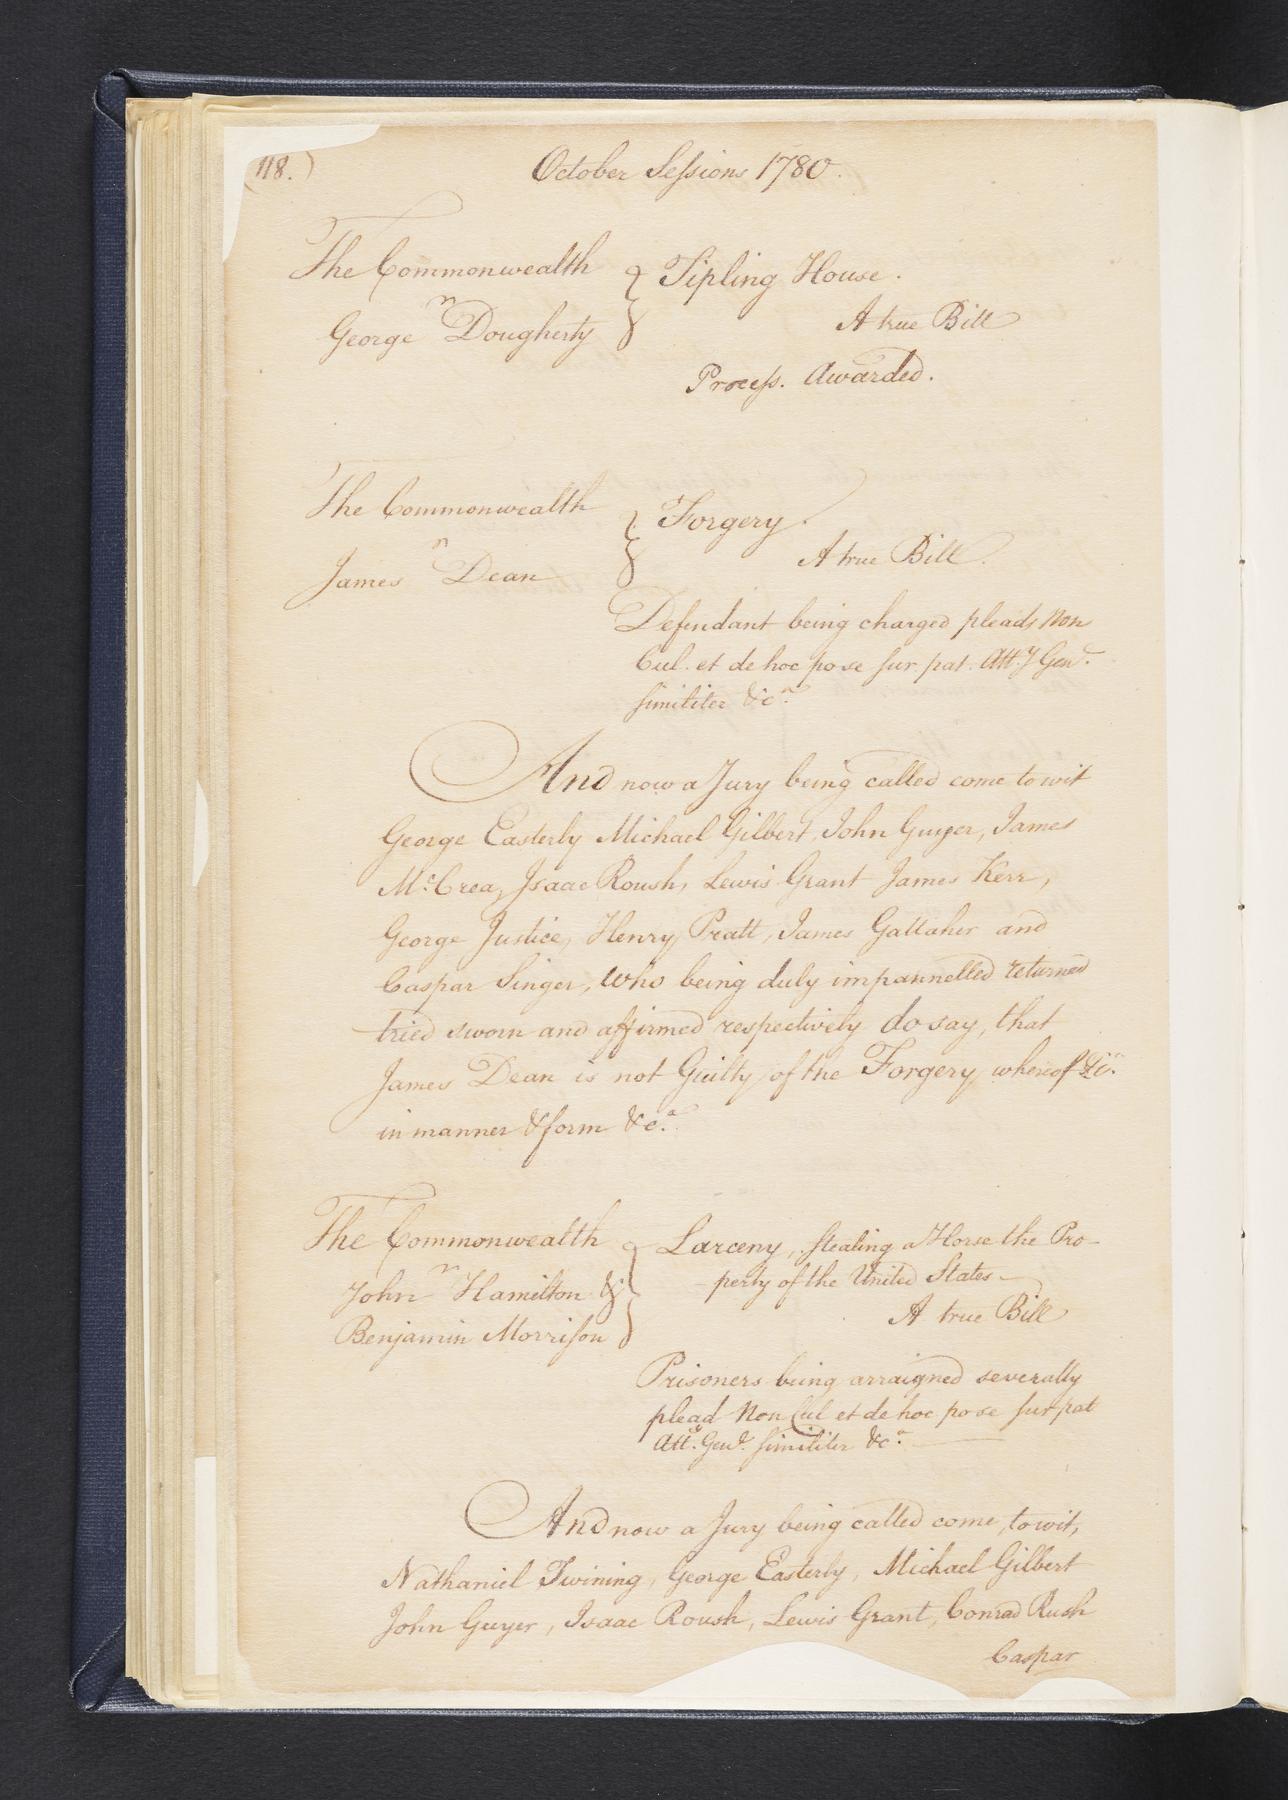 118.)
October Sessions 1780.
The Commonwealth
vs
George Dougherty
Tipling House.
A true Bill
Process. Awarded.
The Commonwealth
vs
James Dean
Forgery.
A true Bill.
Defendant being charged pleads Non
Cul. et de hoc po se sur pat. Atty Genl.
similiter &ca.
And now a Jury being called come to wit
George Easterly Michael Gilbert, John Guyer, James
McCrea, Isaac Roush, Lewis Grant James Kerr,
George Justice, Henry Pratt, James Gallaher and
Caspar Singer, who being duly impannelled returned
tried sworn and affirmed respectively do say, that
James Dean is not Guilty of the Forgery whereof &ca.
in manner & form &ca.
The Commonwealth
vs
John Hamilton &
Benjamin Morrison
Larceny, stealing a Horse the Pro-
-perty of the United States
A true Bill
Prisoners being arraigned severally
plead Non Cul et de hoc po se sur pat
Atty. Genl. similiter &ca.
And now a Jury being called come, to wit,
Nathaniel Twining, George Easterly, Michael Gilbert
John Guyer, Isaac Roush, Lewis Grant, Conrad Rush
Caspar